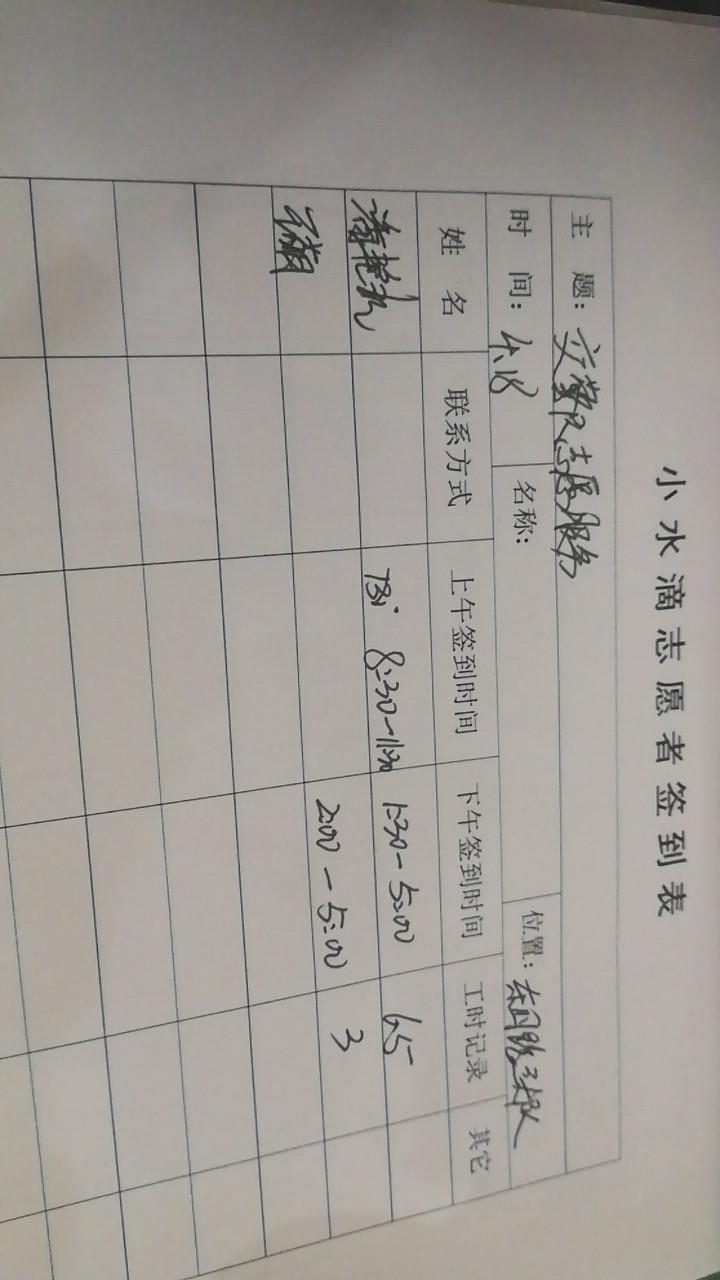 小水滴志愿者签到表
主 题：交警队志愿服务
时 间：4.18 名称： 位置：
姓 名 联系方式 上午签到时间 下午签到时间 工时记录 其它
8:30-11:30 1:30-5:00 6.5
2:00-5:00 3